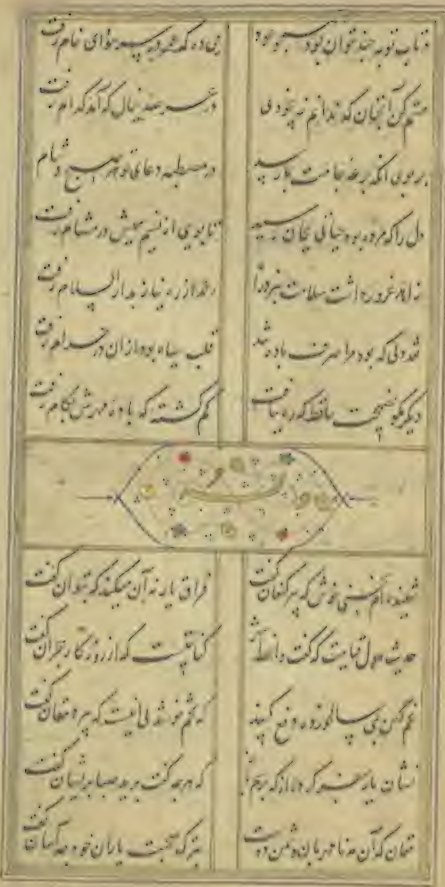 در تاب توبه چند توان بود همچو عود می ده که عمر در سر سودای خام رفت
مستم کن آنچنان که ندانم ز بیخودی در عرصه خیال که آمد کدام رفت
بر بوی آنکه جرعه جامت بما رسد در مصطبه دعای تو هر صبح و شام رفت
دل را که مرده بود حیاتی بجان رسید تا بویی از نسیم میش در مشام رفت
زاهد غرور داشت سلامت نبرد راه رند از ره نیاز بدار السلام رفت
نقد دلی که بود مرا صرف باده شد قلب سیاه بود از آن در حرام رفت
دیگر مگو نصیحت حافظ که ره نیافت گم گشته که باده مهرش بکام رفت
شنیده‌ام سخنی خوش که پیر کنعان گفت فراق یار نه آن میکند که بتوان گفت
حدیث هول قیامت که گفت واعظ شهر کنایتیست که از روزگار هجران گفت
غم کهن بمی سالخورده دفع کنید که تخم خوشدلی اینست که پیر دهقان گفت
نشان یار سفر کرده از که پرسم که هر چه گفت برید صبا پریشان گفت
فغان که آن مه نامهربان دشمن دوست بترک صحبت یاران خود چه آسان گفت